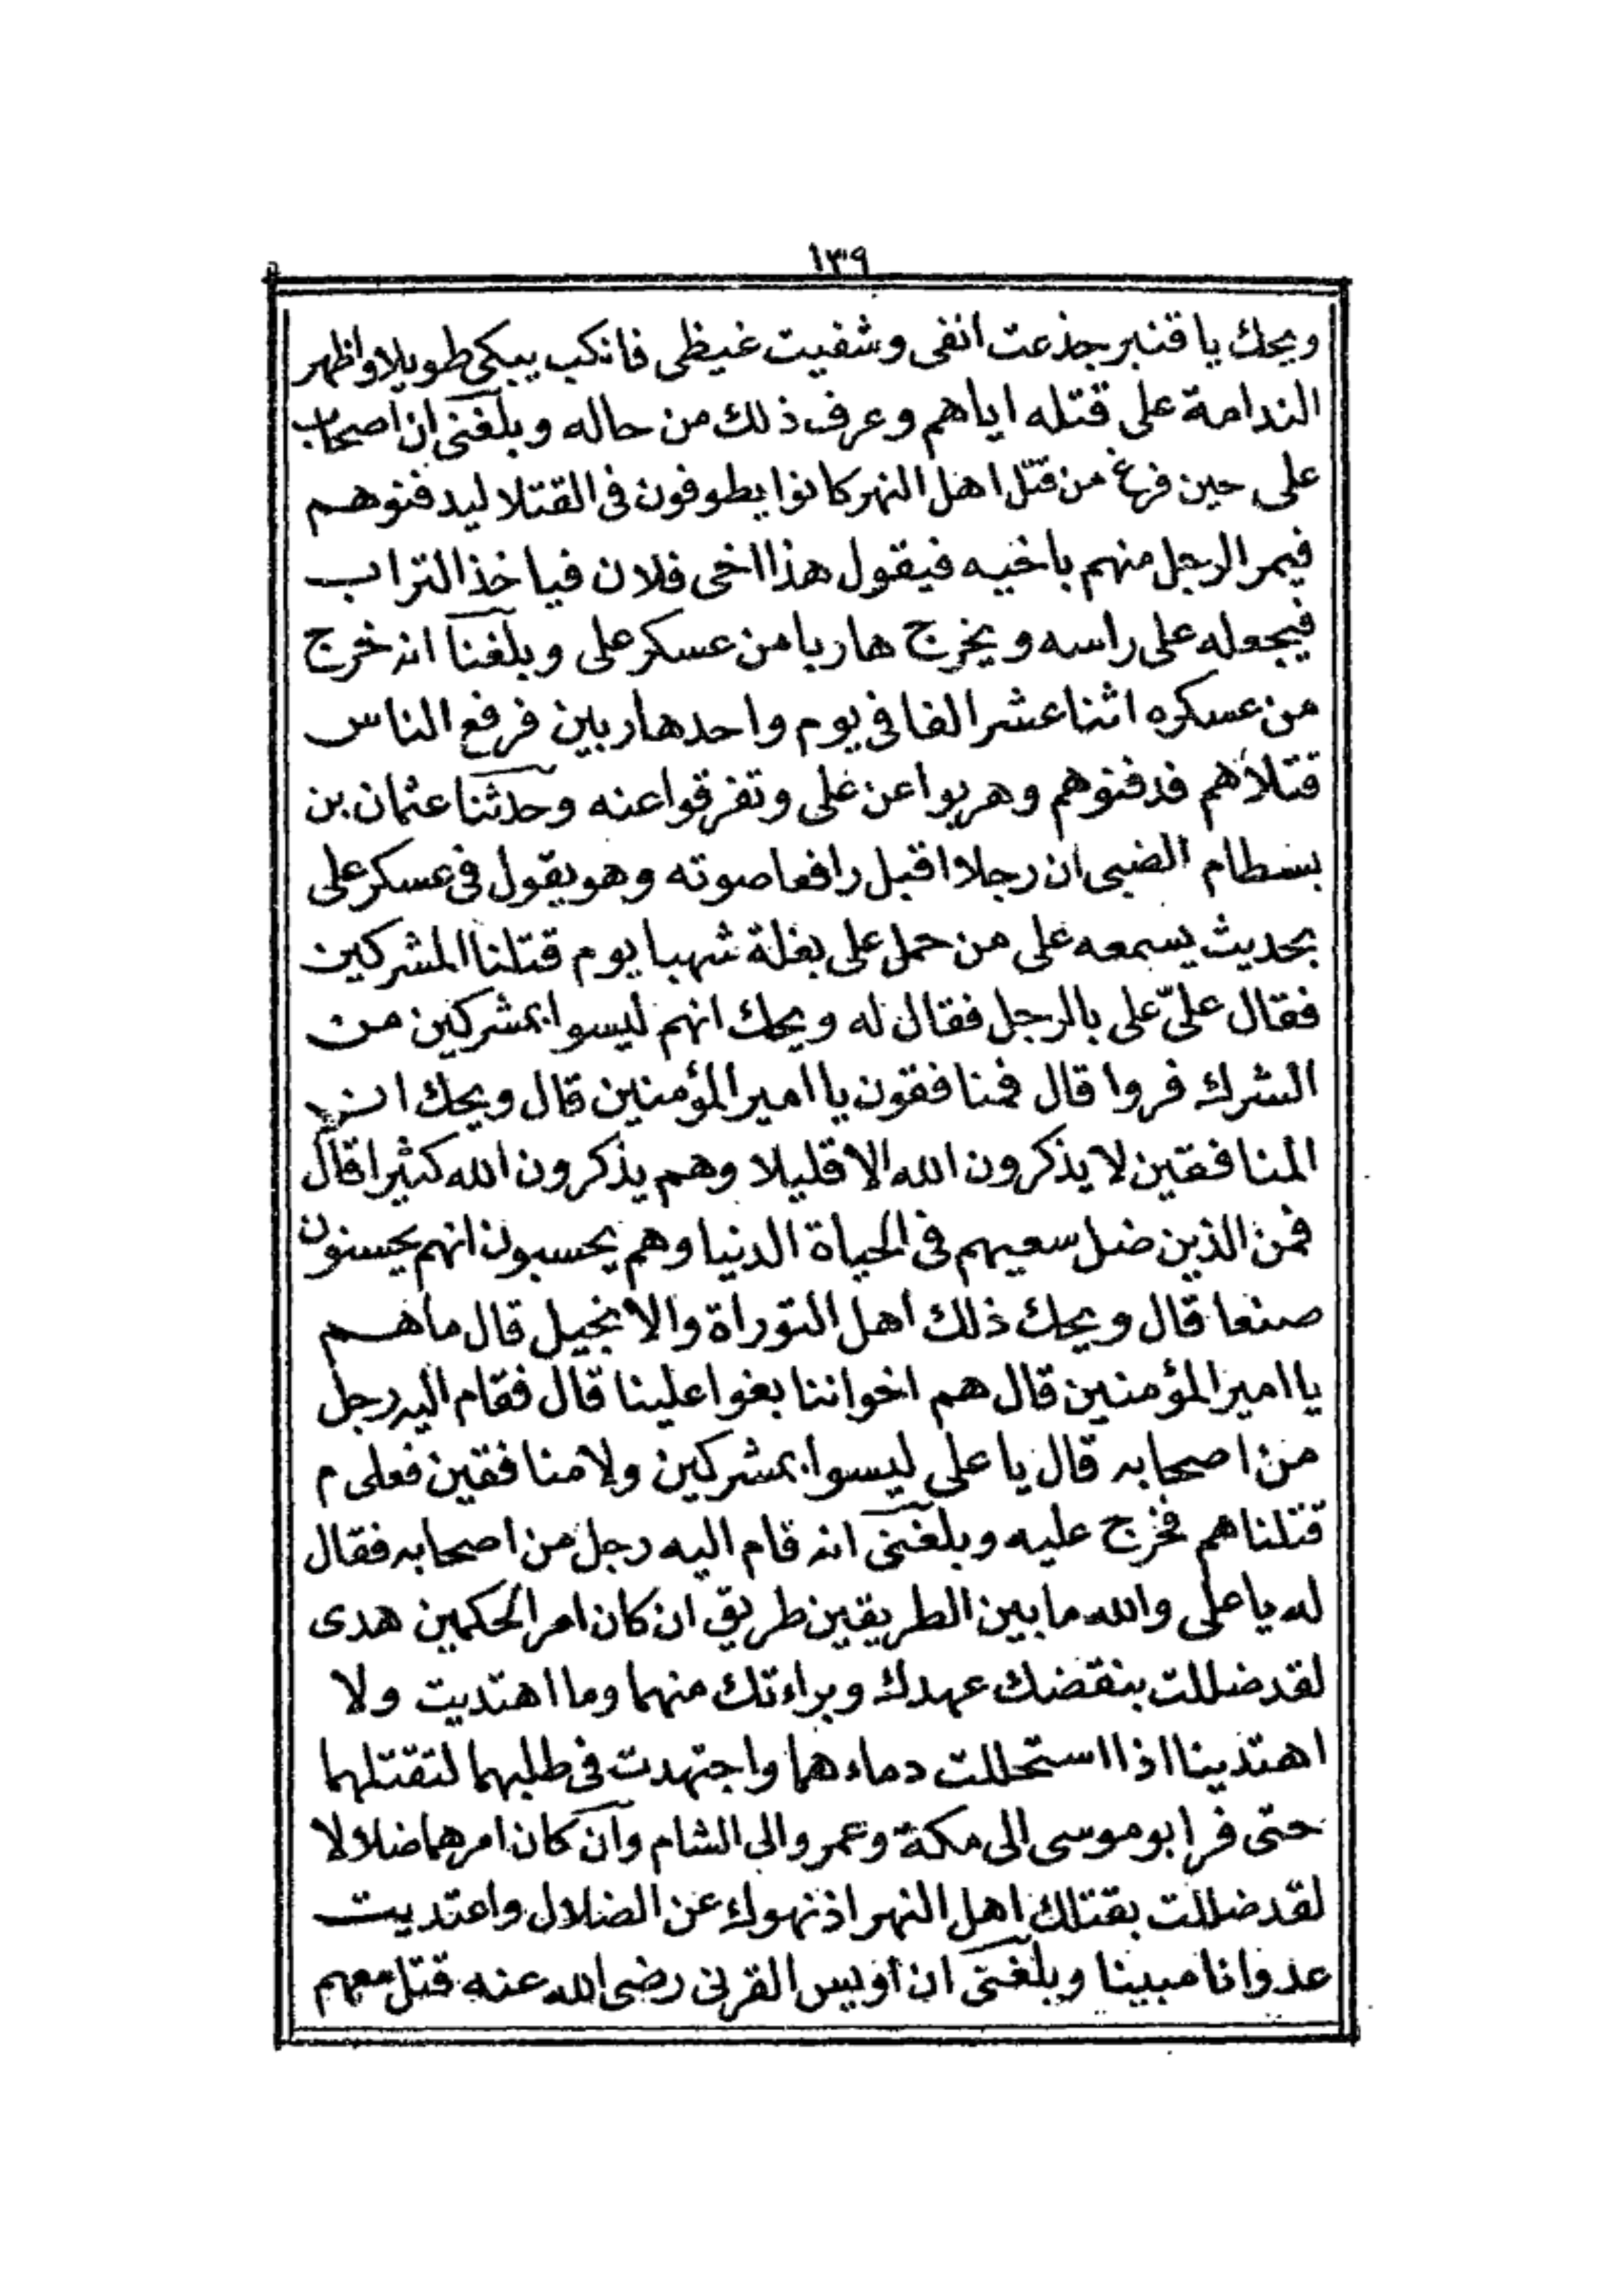 ١٣٩
ويحك يا قنبر جذعت انفى وشفيت غيظى فانكب يبكى طويلا واظهر
الندامة على قتله اياهم وعرف ذلك من حاله وبلغنى ان اصحاب
على حين فرغ من قتل اهل النهر كانوا يطوفون فى القتلا ليدفنوهم
فيمر الرجل منهم باخيه فيقول هذا اخى فلان فياخذ التراب
فيجعله على راسه ويخرج هاربا من عسكر على وبلغنا انه خرج
من عسكره اثنا عشر الفا في يوم واحد هاربين فرفع الناس
قتلاهم فدفنوهم وهربوا عن على وتفرقوا عنه وحدثنا عثمان بن
بسطام الضبى ان رجلا اقبل رافعا صوته وهو يقول فى عسكر على
بحديث يسمعه على من حمل على بغلة شهبا يوم قتلنا المشركين
فقال علىّ على بالرجل فقال له ويحك انهم ليسوا بمشركين من
الشرك فروا قال فمنافقون يا امير المؤمنين قال ويحك ان
المنافقين لا يذكرون الله الا قليلا وهم يذكرون الله كثيرا قال
فمن الذين ضل سعيهم فى الحياة الدنيا وهم يحسبون انهم يحسنون
صنعا قال ويحك ذلك اهل التوراة والانجيل قال ما هم
يا امير المؤمنين قال هم اخواننا بغوا علينا قال فقام اليه رجل
من اصحابه قال يا على ليسوا بمشركين ولا منافقين فعلى م
قتلناهم فخرج عليه وبلغنى انه قام اليه رجل من اصحابه فقال
له يا على والله ما بين الطريقين طريق ان كان امر الحكمين هدى
لقد ضللت بنقضك عهدك وبراءتك منهما وما اهتديت ولا
اهتدينا اذا استحللت دماءهما واجتهدت فى طلبهما لتقتلهما
حتى فر ابو موسى الى مكة وعمرو الى الشام وان كان امرهما ضلالا
لقد ضللت بقتلك اهل النهر اذ نهوك عن الضلال واعتديت
عدوانا مبينا وبلغنى ان اويس القرنى رضى الله عنه قتل معهم